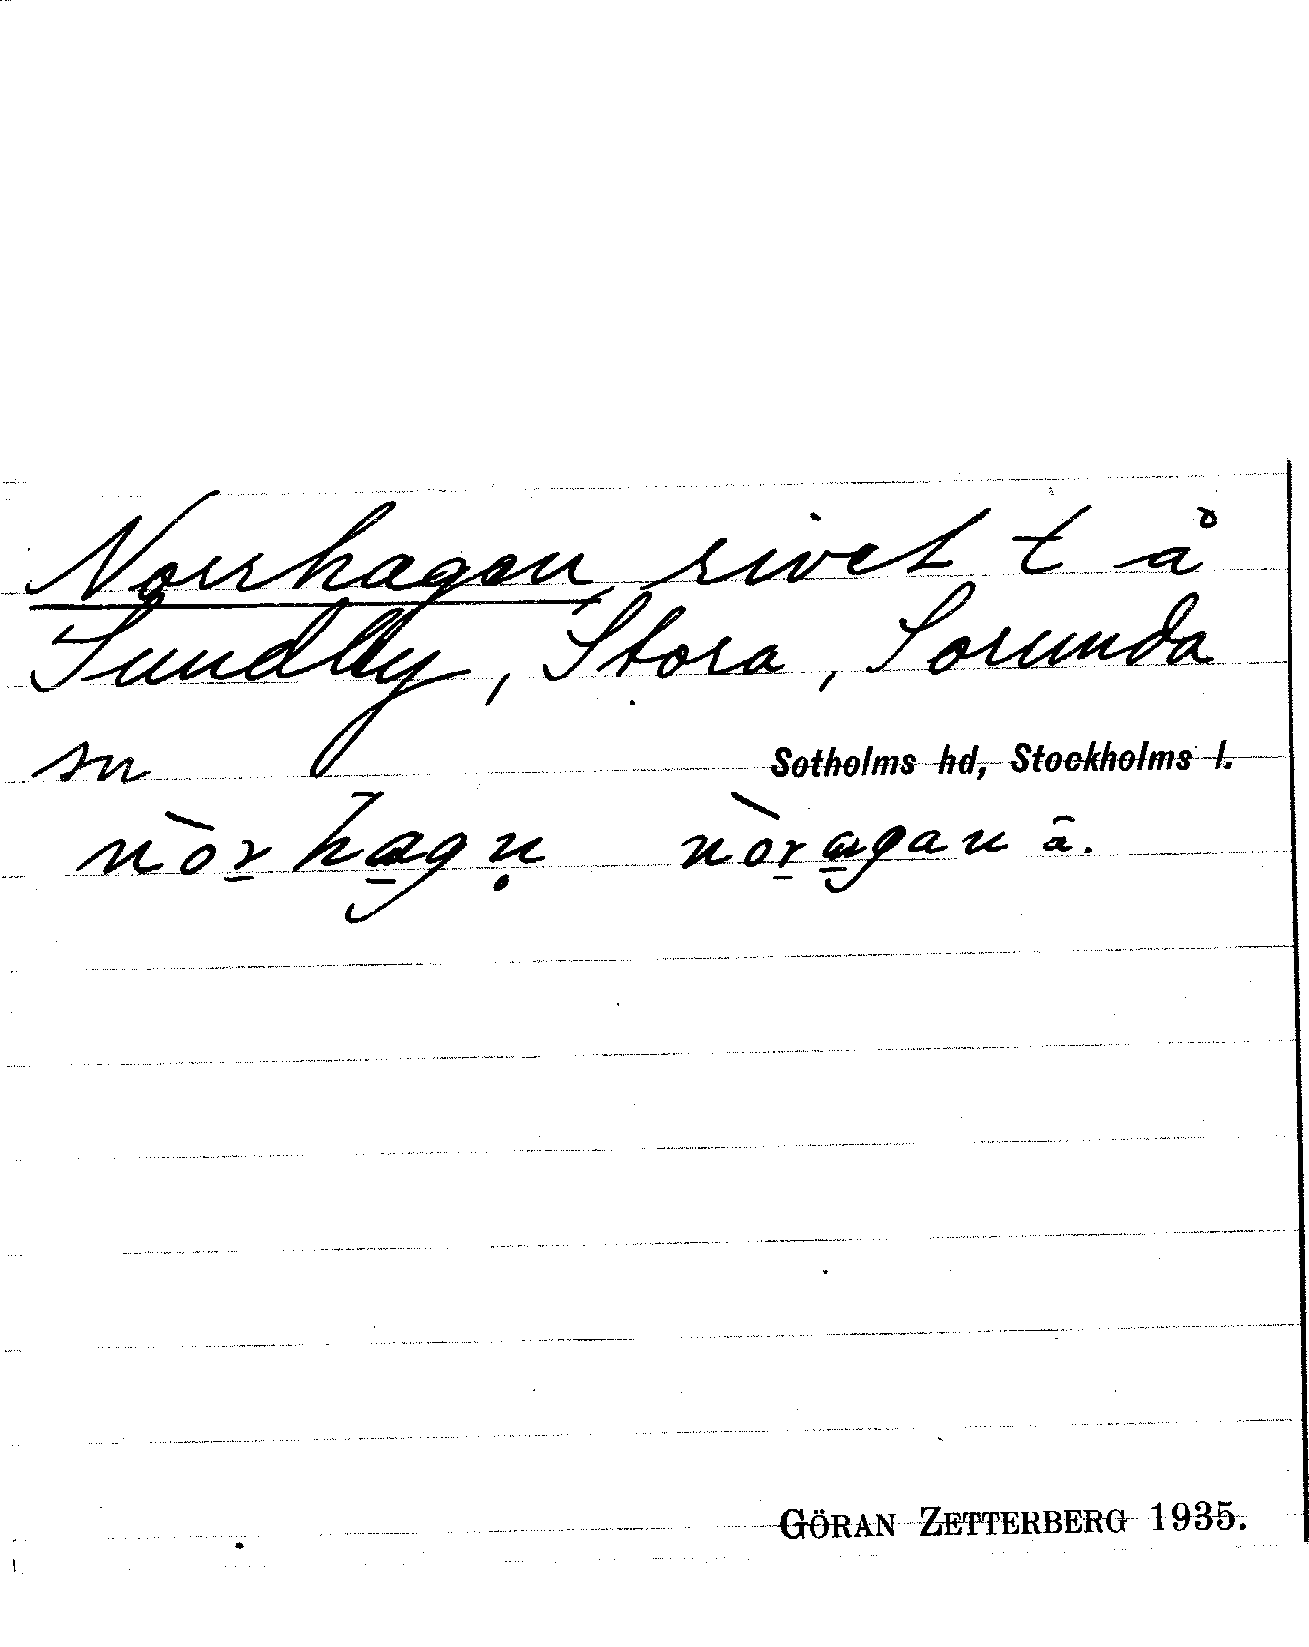 Norrhagen, rivet t å
Sundby, Stora, Sorunda
sn
Sotholms hd, Stockholms l.
nòrhagn̥ nòragan ā.
GÖRAN ZETTERBERG 1935.